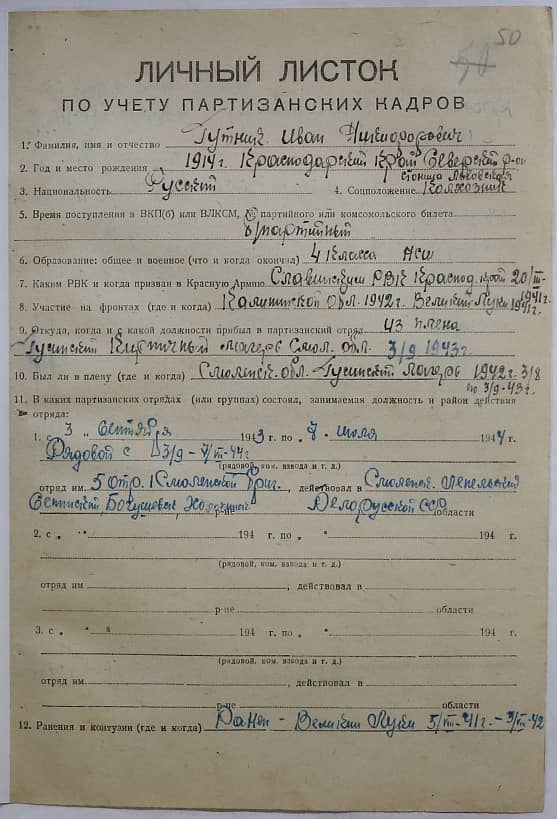 50
ЛИЧНЫЙ ЛИСТОК
ПО УЧЕТУ ПАРТИЗАНСКИХ КАДРОВ
1. Фамилия, имя и отчество Гутник Иван Никифорович
2. Год и место рождения 1917г. Краснодарский край Северский р-он
станица Львовская
3. Национальность Русский 4. Соцположение Колхозник
5. Время поступления в ВКП(б) или ВЛКСМ, № партийного или комсомольского билета
б/партийный
6. Образование: общее и военное (что и когда окончил) 4 класса НСШ
7. Каким РВК и когда призван в Красную Армию Славинским РВК Краснод. край 20/III-
1941г.
8. Участие на фронтах (где и когда) Калининской обл. 1942г. Великий Луки 1941г.
9. Откуда, когда и с какой должности прибыл в партизанский отряд из плена
Гусинский Кирпичный лагерь Смол. обл. 3/9 1943г.
10. Был ли в плену (где и когда) Смоленск. обл. Гусинский лагерь 1942г. 3/8
по 3/9-43г.
11. В каких партизанских отрядах (или группах) состоял, занимаемая должность и район действия
отряда:
1. с „ 3 „ Сентября 1943 г. по „ 7 „ июля 1944 г.
Рядовой с 3/9 - 7/VII-44г
(рядовой, ком. взвода и т. д.)
отряд им. 5 отр. 1 Смоленской Бриг., действовал в Смоленск. Лепельский
Сенинский Богушевск, Холопинич р-не Белорусской ССР области
2. с „ „ 194 г. по „ „ 194 г.
(рядовой, ком. взвода и т. д.)
отряд им , действовал в
р-не области
3. с „ „ 194 г. по „ „ 194 г.
(рядовой, ком. взвода и т. д.)
отряд им , действовал в
р-не области
12. Ранения и контузии (где и когда) Ранен - Великие Луки